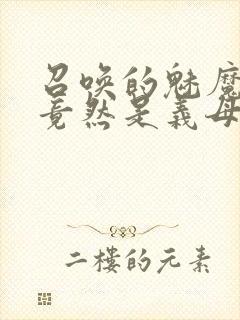 召唤的魅魔
竟然是义母
二楼的元素